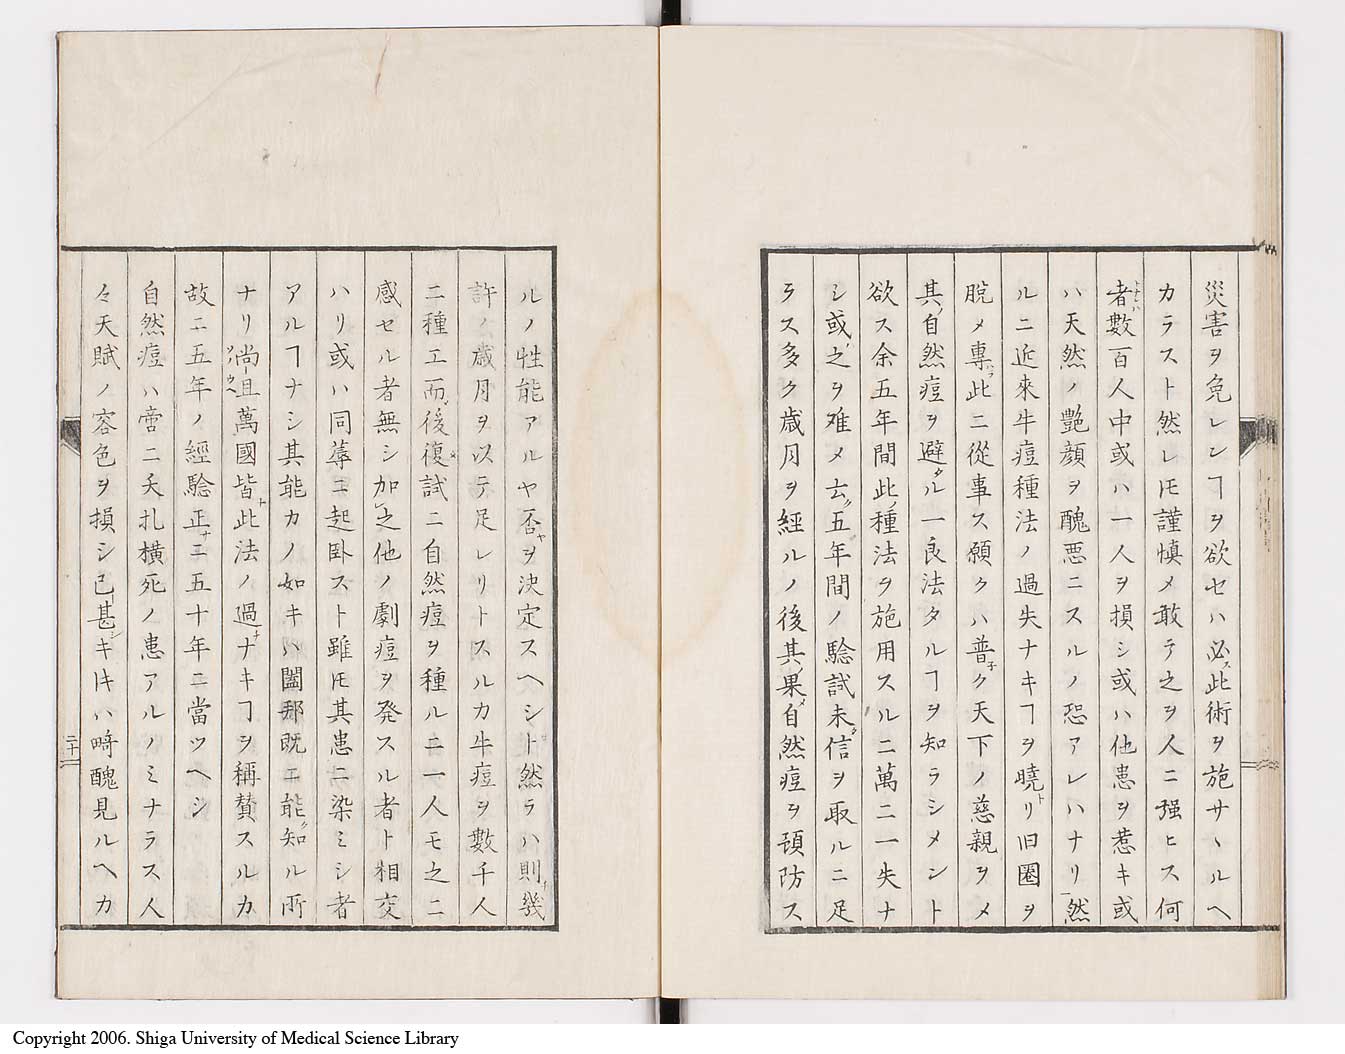 災害ヲ免レンヿヲ欲セハ必ス此術ヲ施サヽルヘ
カラスト然レ𪜈謹慎メ敢テ之ヲ人ニ强ヒス何
者數百人中或ハ一人ヲ損シ或ハ他患ヲ惹キ或
ハ天然ノ艷顔ヲ醜悪ニスルノ恐アレハナリ然
ルニ近來牛痘種法ノ過失ナキヿヲ曉リ旧圈ヲ
脫メ專ラ此ニ從事ス願クハ普ク天下ノ慈親ヲメ
其自然痘ヲ避クル一良法タルヿヲ知ラシメント
欲ス余五年間此種法ヲ施用スルニ萬ニ一失ナ
シ或之ヲ难メ云五年間ノ驗試未タ信ヲ取ルニ足
ラス多ク歳月ヲ經ルノ後其果メ自然痘ヲ預防ス
ルノ性能アルヤ否ヤヲ決定スヘシト然ラハ則チ幾
許ノ歳月ヲ以テ足レリトスルカ牛痘ヲ數千人
ニ種エ而後復試ニ自然痘ヲ種ルニ一人モ之ニ
感セル者無シ加之他ノ劇痘ヲ発スル者ト相交
ハリ或ハ同蓐ニ起卧スト雖𪜈其患ニ染ミシ者
アルヿナシ其能力ノ如キハ闔邦既ニ能知ル所
ナリ尚且萬國皆此法ノ過ナキヿヲ稱賛スルカ
故ニ五年ノ經驗正ニ五十年ニ當ツヘシ
自然痘ハ啻ニ夭札橫死ノ患アルノミナラス人
々天賦ノ容色ヲ損シ已甚キ𪜈ハ畸醜見ルヘカ
二十一
Copyright 2006. Shiga University of Medical Science Library